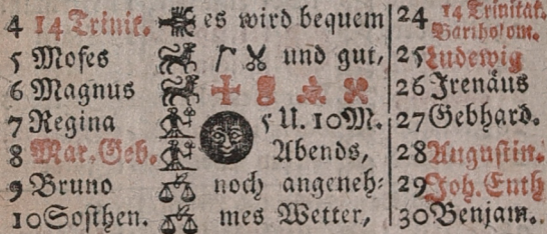 4 14 Trinit. es wird bequem 24 14 Trinitat. Bartholom.
5 Moses und gut, 25 Ludewig
6 Magnus 26 Irenäus
7 Regina 5 U. 10 M. 27 Gebhard.
8 Mar. Geb. Abends, 28 Augustin.
9 Bruno noch angeneh- 29 Joh. Enth
10 Sosthen. mes Wetter, 30 Benjam.